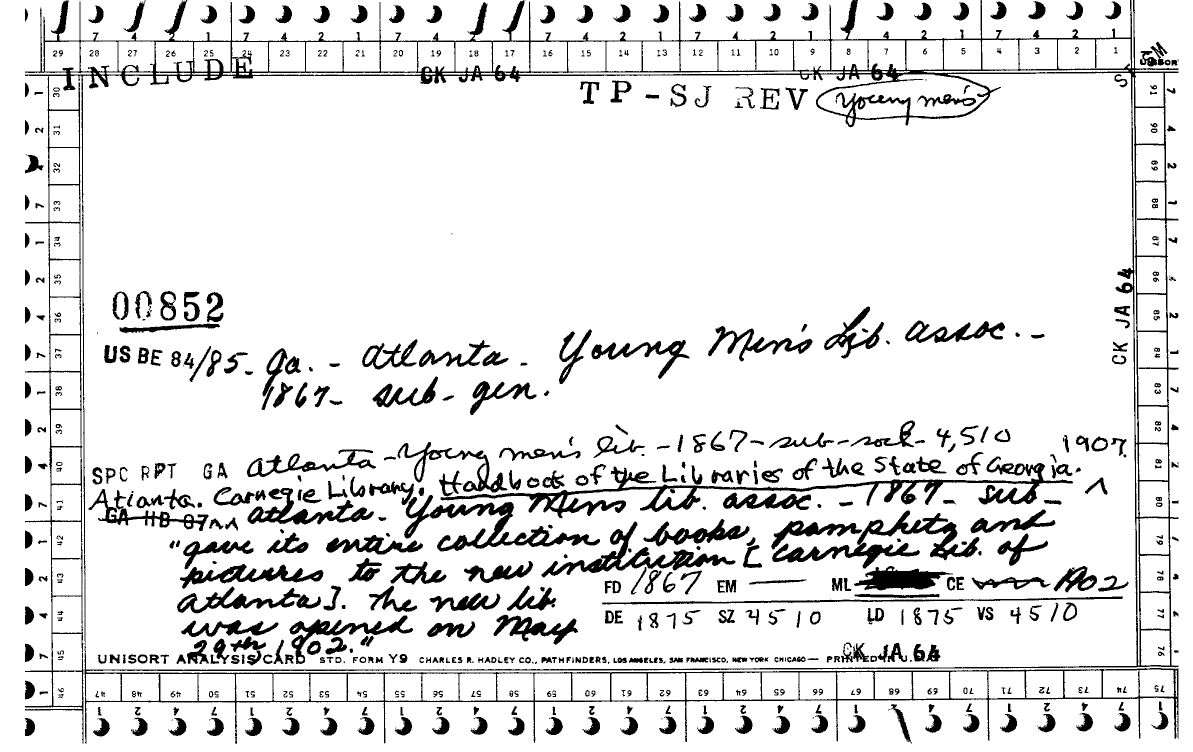 7 4 2 1 7 4 2 1 7 4 2 1 7 4 2 1 7 4 2 1 7 4 2 1 7 4 2 1
29 28 27 26 25 24 23 22 21 20 19 18 17 16 15 14 13 12 11 10 9 8 7 6 5 4 3 2 1
INCLUDE CK JA 64 CK JA 64
TP-SJ REV Young men's
00852
CK JA 64
US BE 84/85 - Ga. - Atlanta - Young Men's Lib. Assoc. -
1867 - sub - gen.
SPC RPT GA Atlanta - Young men's lib. - 1867 - sub - sock - 4,510 1907.
Atlanta. Carnegie Library. Handbook of the Libraries of the State of Georgia. ^
GA HB 07 Atlanta. Young Mens lib. assoc. - 1867 - sub -
"gave its entire collection of books, pamphets and
pictures to the new institution [Carnegie Lib. of
Atlanta]. The new lib.
was opened on May
29th 1902."
FD 1867 EM — ML CE 1902
DE 1875 SZ 4510 LD 1875 VS 4510
CK JA 64
UNISORT ANALYSIS CARD STD. FORM Y9 CHARLES R. HADLEY CO., PATHFINDERS, LOS ANGELES, SAN FRANCISCO, NEW YORK CHICAGO — PRINTED IN U.S.A.
46 47 48 49 50 51 52 53 54 55 56 57 58 59 60 61 62 63 64 65 66 67 68 69 70 71 72 73 74 75
30 31 32 33 34 35 36 37 38 39 40 41 42 43 44 45
91 90 89 88 87 86 85 84 83 82 81 80 79 78 77 76